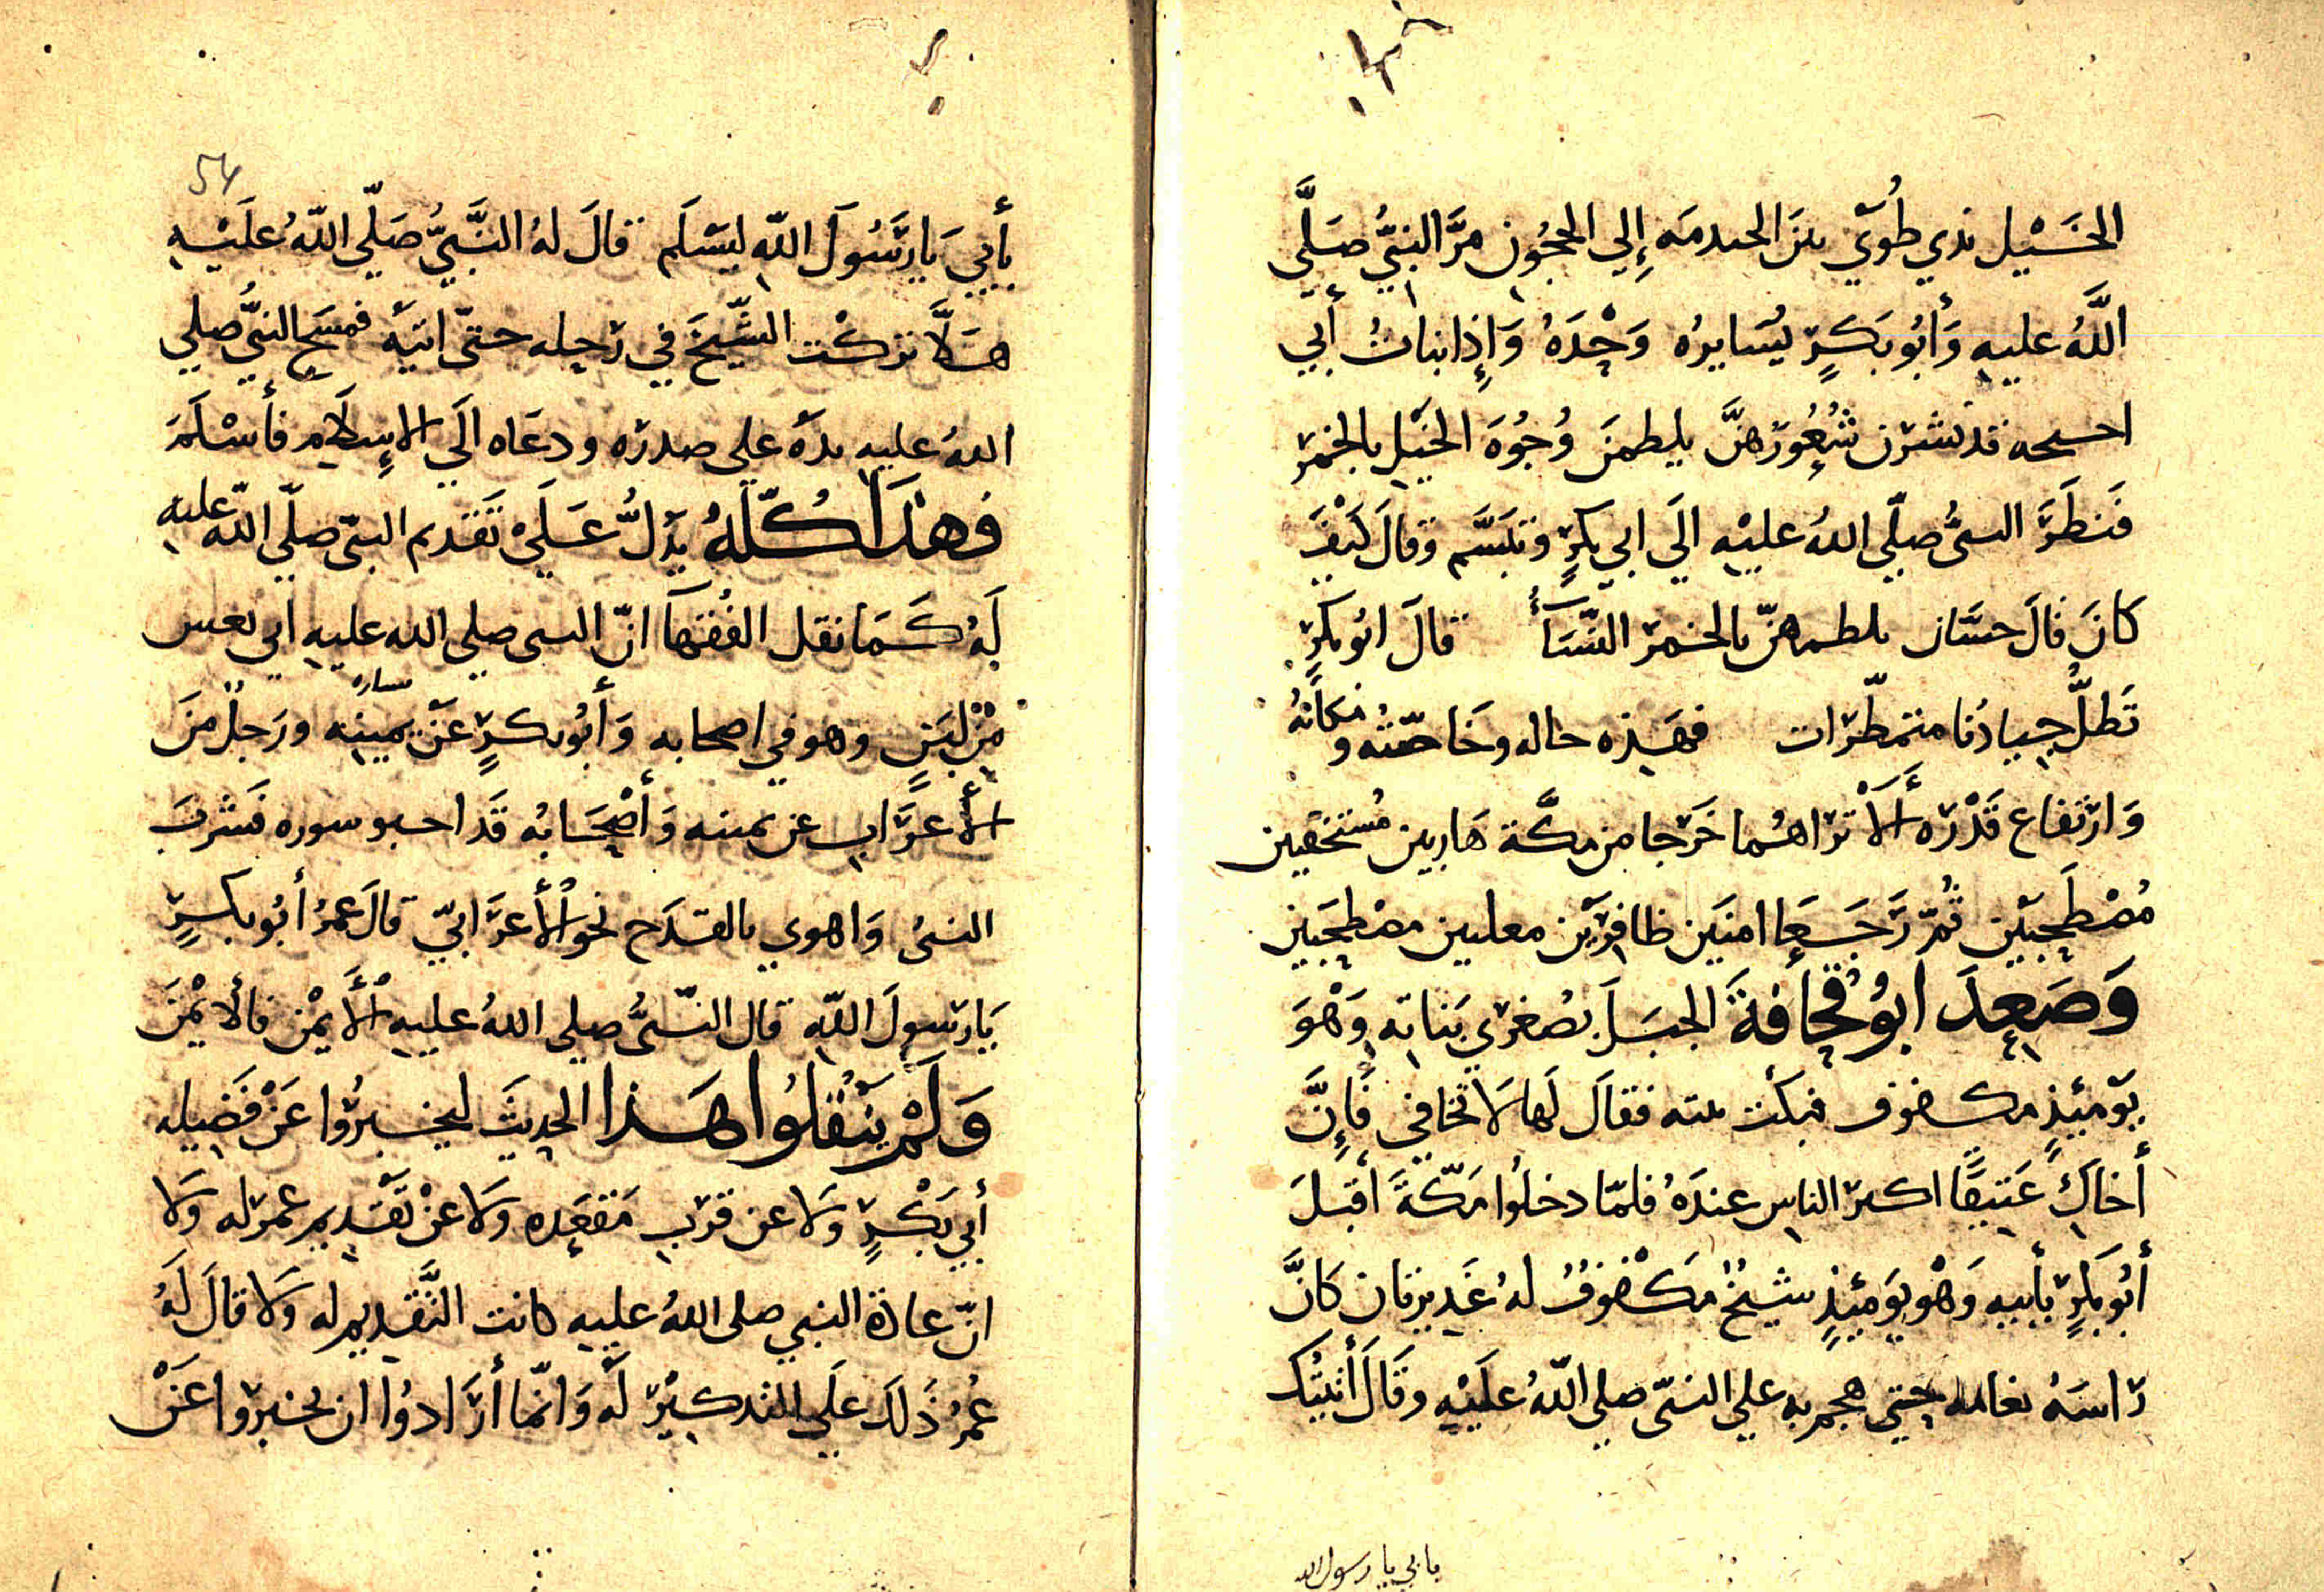 الخَيْل بذي طُوًى بين الخندمه إِلى الحجُون مرَّ النبيُّ صَلَّى
اللَّهُ عليهِ وَأَبُو بَكرٍ يُسَايرُه وَحْدَهُ وَإِذا بناتُ أَبي
احيحه قد نشرن شُعُورَهنَّ يلطمنَ وُجُوهَ الخَيْلِ بالخُمرِ
فَنظَرَ النبىُّ صلّى اللهُ عليْهِ الَى ابي بكرٍ وتبَسَّم وقالَ كَيْفَ
كانَ قالَ حسَّان يلطمهنّ بالخمر النّسَآءُ قالَ ابُو بكرٍ
تَظلُّ جيادُنا متمطّرات فهَذِه حاله وخَاصّتُه ومكانهُ
وَارتفاع قَدْرَه أَلَا تراهُما خَرجا من مكَّة هَاربين مُستخفيين
مُصْطَحِبَيْن ثُمّ رَجَعَا امنَين ظافرَيْن معلنين مصْطحبَين
وَصَعِدَ ابُو قُحافةَ الجبَلَ بصُغرى بَناتِه وَهْوَ
يَوْمَئِذٍ مكفوف فبكَت بنته فقالَ لَها لَا تخافي فَإِنَّ
أَخاكِ عَتيقًا اكبر الناس عندَهُ فلمّا دخلُوا مَكّةَ أَقبَلَ
أَبُو بَكرٍ بأَبيهِ وَهْو يوَمئِذٍ شيخٌ مَكْفوفٌ لهُ غَديرتان كَانَّ
رَاسَهُ ثغامه حتى هجم به علي النبيّ صلى اللّهُ عليْهِ وقَالَ أَتيتُك
بابي يا رسول الله
54
بأَبيَ يا رَسُولَ اللّهِ ليَسْلَم قالَ لهُ النَّبيُّ صَلّى اللّهُ عَليْهِ
هَلَّا تركْت الشّيْخَ في رَحِله حتّى اتيَهُ فمسَحَ النبيُّ صلى
اللهُ عليهِ يدَهُ على صدرَه ودعَاه الَى الإِسلَام فأَسْلَمَ
فَهذَا كُلّهُ يَدُلُّ عَلَى تَقَديم النبيّ صلّى اللّه عليه
لَهُ كَمَا نقل الفُقهآ انّ النبي صلى الله عليهِ أُتي بعس
مِنْ لبَنٍ وهو في اصحابه وَأَبُو بكرٍ عَنْ يمينِه يساره ورَجلٌ منَ
الأَعرَاب عن يمينه وَأَصْحَابُه قَد احبو سوره فشَربَ
النبىُ وَاهوي بالقَدَح نحو الأَعرَابيّ قالَ عمرُ أَبُو بكرٍ
يَا رسولَ اللّهِ قال النّبىُّ صلى اللهُ عليهِ الأَيمْن فالأَيمْنَ
وَلَمْ يَنْقلُوا هَذا الحديثَ ليخبرُوا عَنْ فَضيله
أَبي بَكْرٍ وَلا عن قرب مَقعَدِه وَلا عنْ تَقْديم عمرَ له وَلا
انّ عادة النبي صلى اللهُ عليهِ كانت التَّقديم له وَلا قالَ لَهُ
عُمرُ ذَلكَ علَى التذكيْرِ لَهُ وَانّما أَرَادوُا ان يخبروا عَنْ